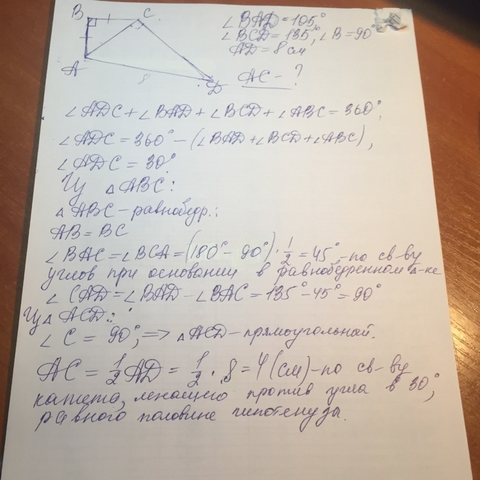 B
C
A
D
8
∠BAD=105°
∠BCD=135°, ∠B=90°
AD=8 см
AC-?
∠ADC+∠BAD+∠BCD+∠ABC=360°,
∠ADC=360°-(∠BAD+∠BCD+∠ABC),
∠ADC=30°.
Из △ABC:
△ABC-равнобедр.:
AB=BC
∠BAC=∠BCA=(180°-90°)·1/2=45°-по св-ву
углов при основании в равнобедренном △-ке
∠CAD=∠BAD-∠BAC=135°-45°=90°
Из △ACD:
∠C=90°, => △ACD-прямоугольный.
AC=1/2AD=1/2·8=4(см)-по св-ву
катета, лежащего против угла в 30°,
равного половине гипотенузы.